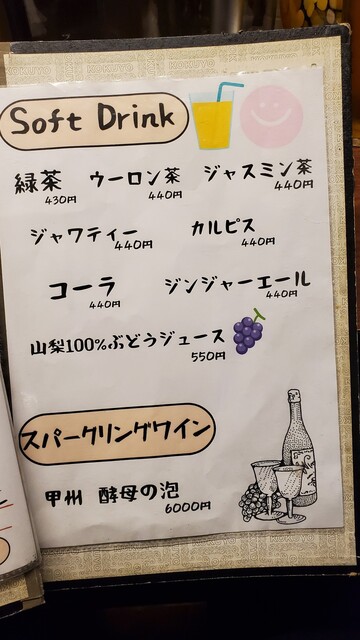 Soft Drink
緑茶 ウーロン茶 ジャスミン茶
430円 440円 440円
ジャワティー カルピス
440円 440円
コーラ ジンジャーエール
440円 440円
山梨100%ぶどうジュース
550円
スパークリングワイン
甲州 酵母の泡
6000円